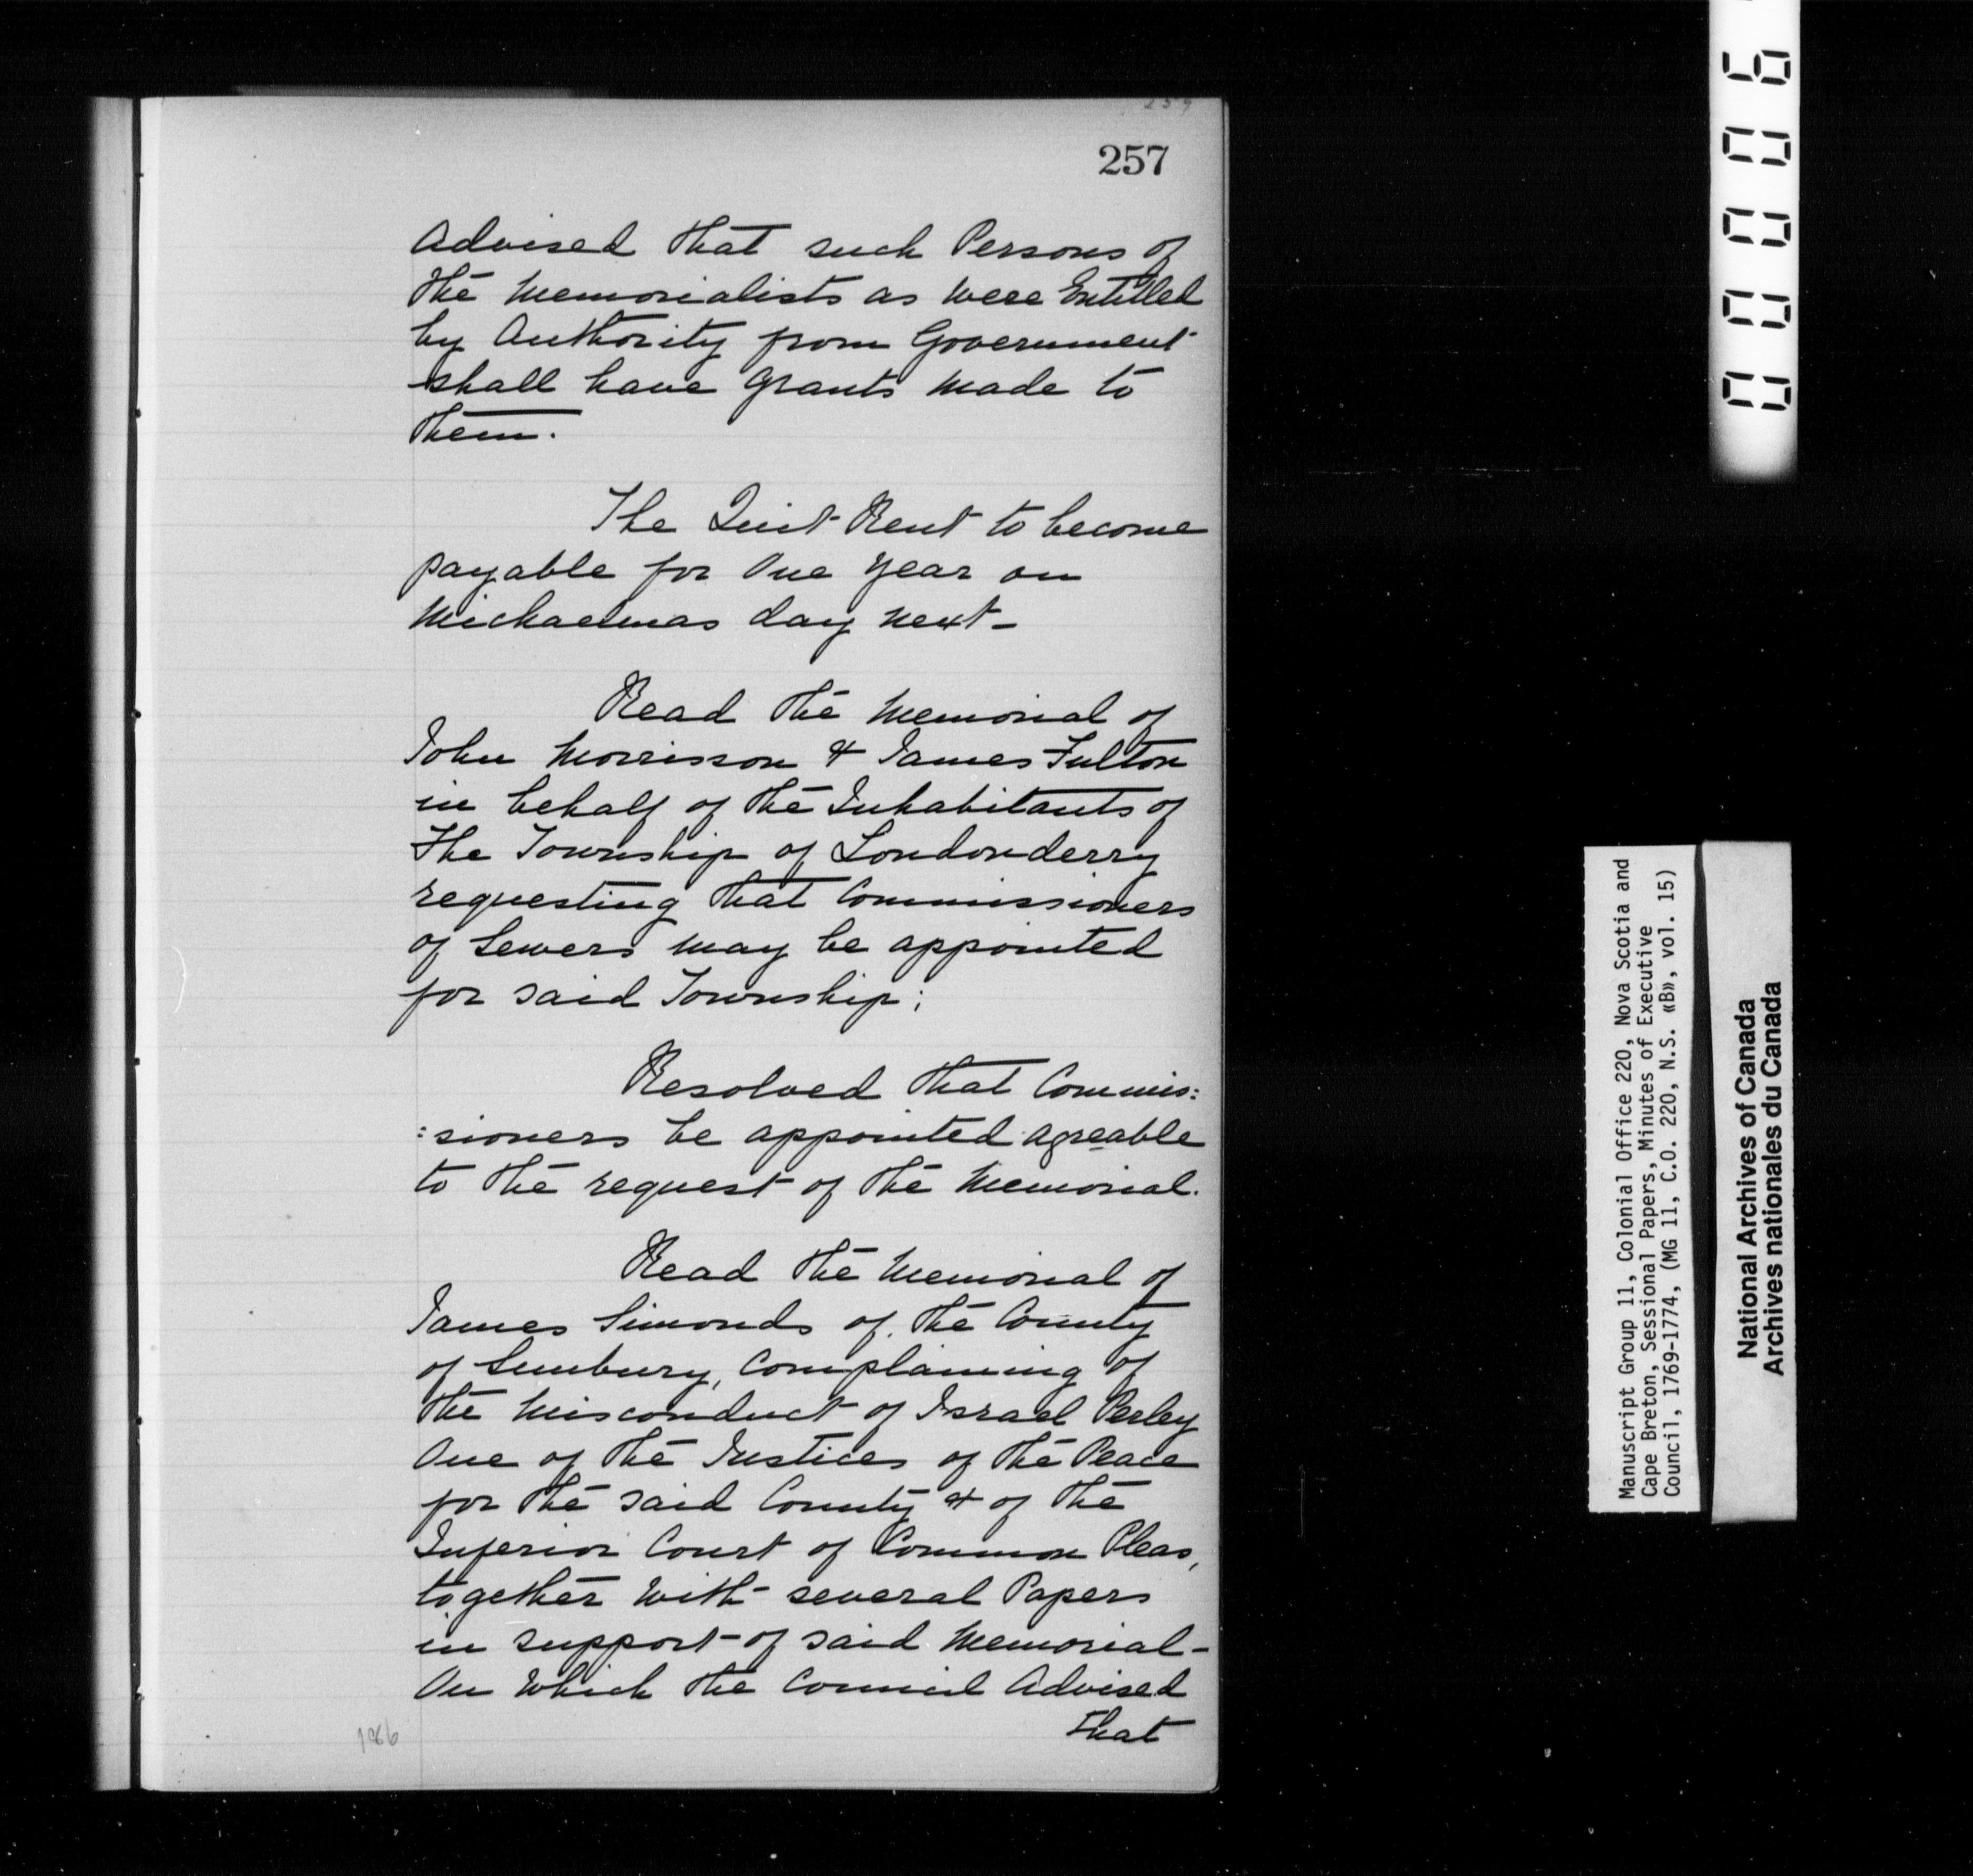 257
Advised that such Persons of
the Memorialists as were Entitled
by Authority from Government
shall have Grants made to
them.
The Quit Rent to become
payable for One Year on
Michaelmas day next-
Read the Memorial of
John Morrisson & James Fulton
in behalf of the Inhabitants of
the Township of Londonderry
requesting that Commissioners
of Sewers may be appointed
for said Township;
Resolved that Commis:
:sioners be appointed agreable
to the request of the Memorial.
Read the Memorial of
James Simonds of the County
of Sunbury, Complaining of
the Misconduct of Israel Perley
One of the Justices of the Peace
for the said County & of the
Inferior Court of Common Pleas,
together with several Papers
in support of said Memorial-
On Which the Council Advised
that
Manuscript Group 11, Colonial Office 220, Nova Scotia and
Cape Breton, Sessional Papers, Minutes of Executive
Council, 1769-1774, (MG 11, C.O. 220, N.S. «B», vol. 15)
National Archives of Canada
Archives nationales du Canada